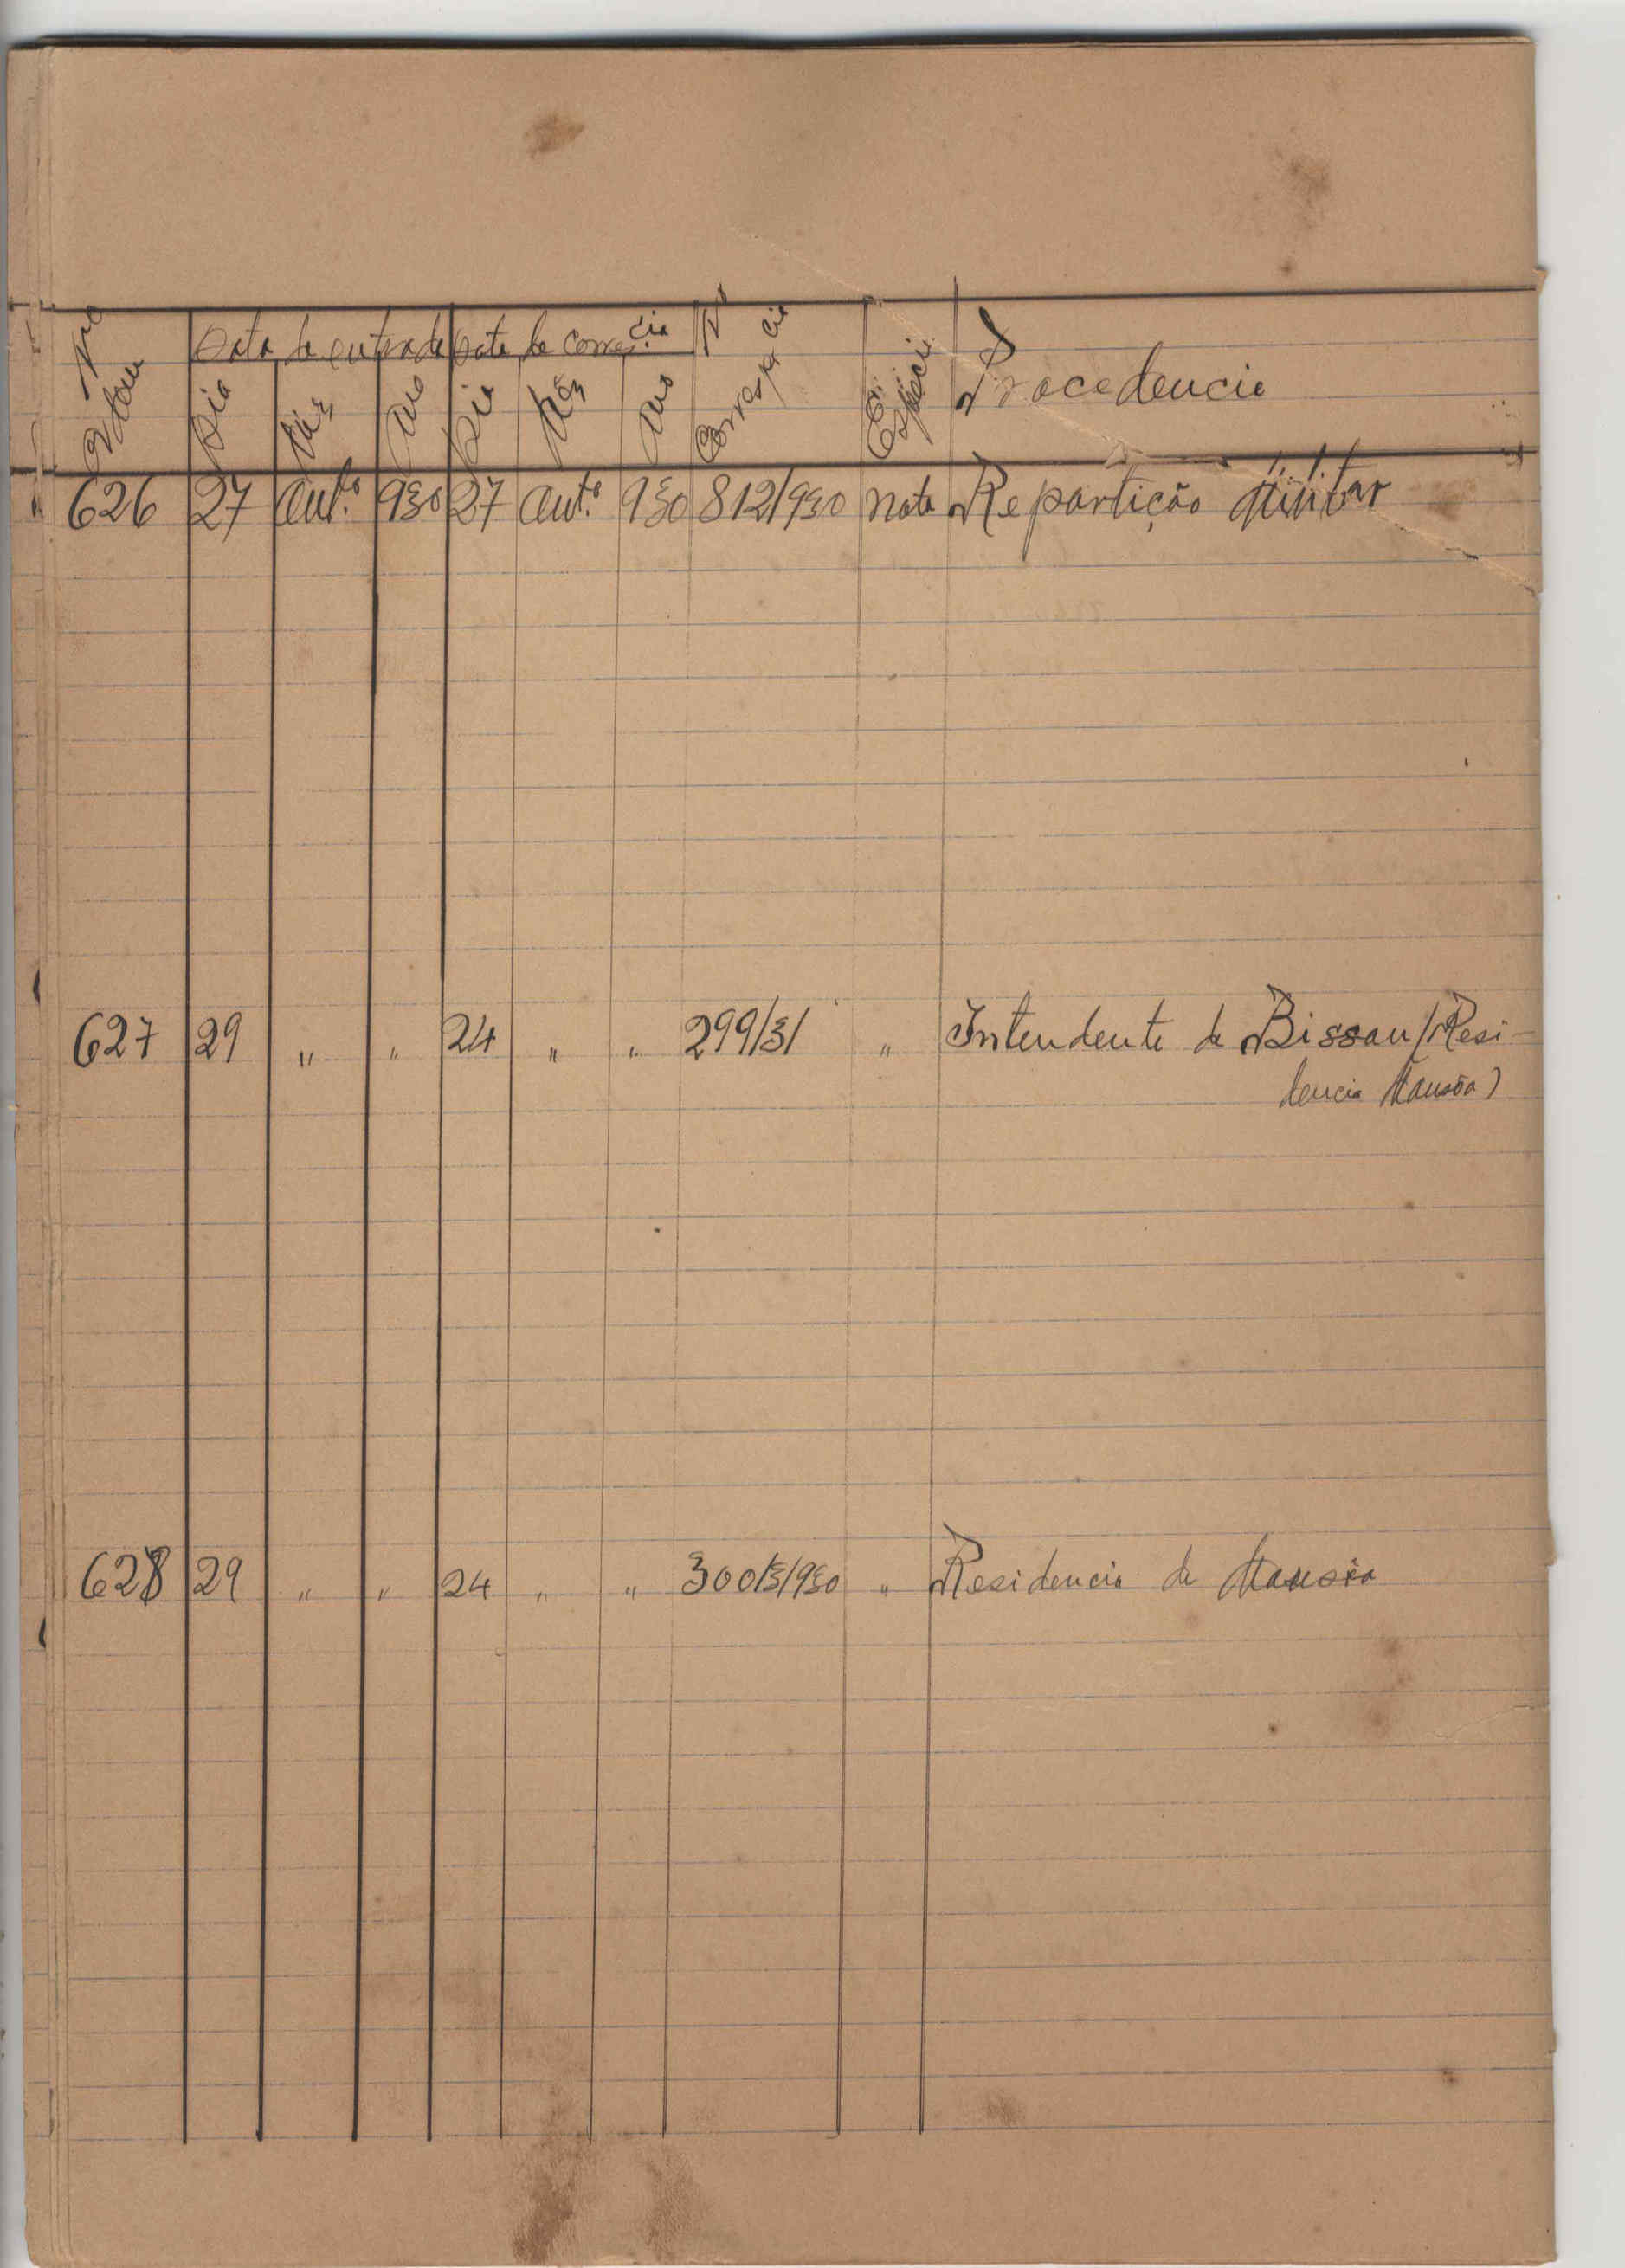 Nro Ordem | Data de entrada | Data de corres.cia | Nº Corresp.cia | Espécie | Procedencia
Dia | Mês | Ano | Dia | Mês | Ano
626 27 Out.º 930 27 Out.º 930 812/930 Nota Repartição Militar
627 29 " " 24 " " 299/3/ " Intendente de Bissau (Resi-
dencia Mansôa)
628 29 " " 24 " " 300/3/930 " Residencia de Mansôa